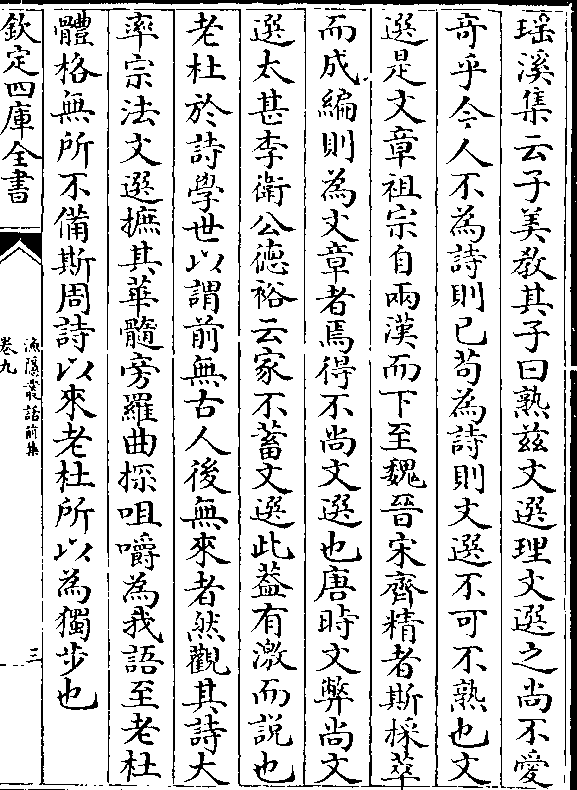 瑶溪集云子美教其子曰熟兹文選理文選之尚不愛
奇乎今人不為詩則已苟為詩則文選不可不熟也文
選是文章祖宗自兩漢而下至魏晉宋齊精者斯採萃
而成編則為文章者焉得不尚文選也唐時文弊尚文
選太甚李衛公德裕云家不蓄文選此葢有激而說也
老杜於詩學世以謂前無古人後無來者然觀其詩大
率宗法文選摭其華髓旁羅曲探咀嚼為我語至老杜
體格無所不備斯周詩以來老杜所以為獨步也
欽定四庫全書
漁隱叢話前集
卷九
三